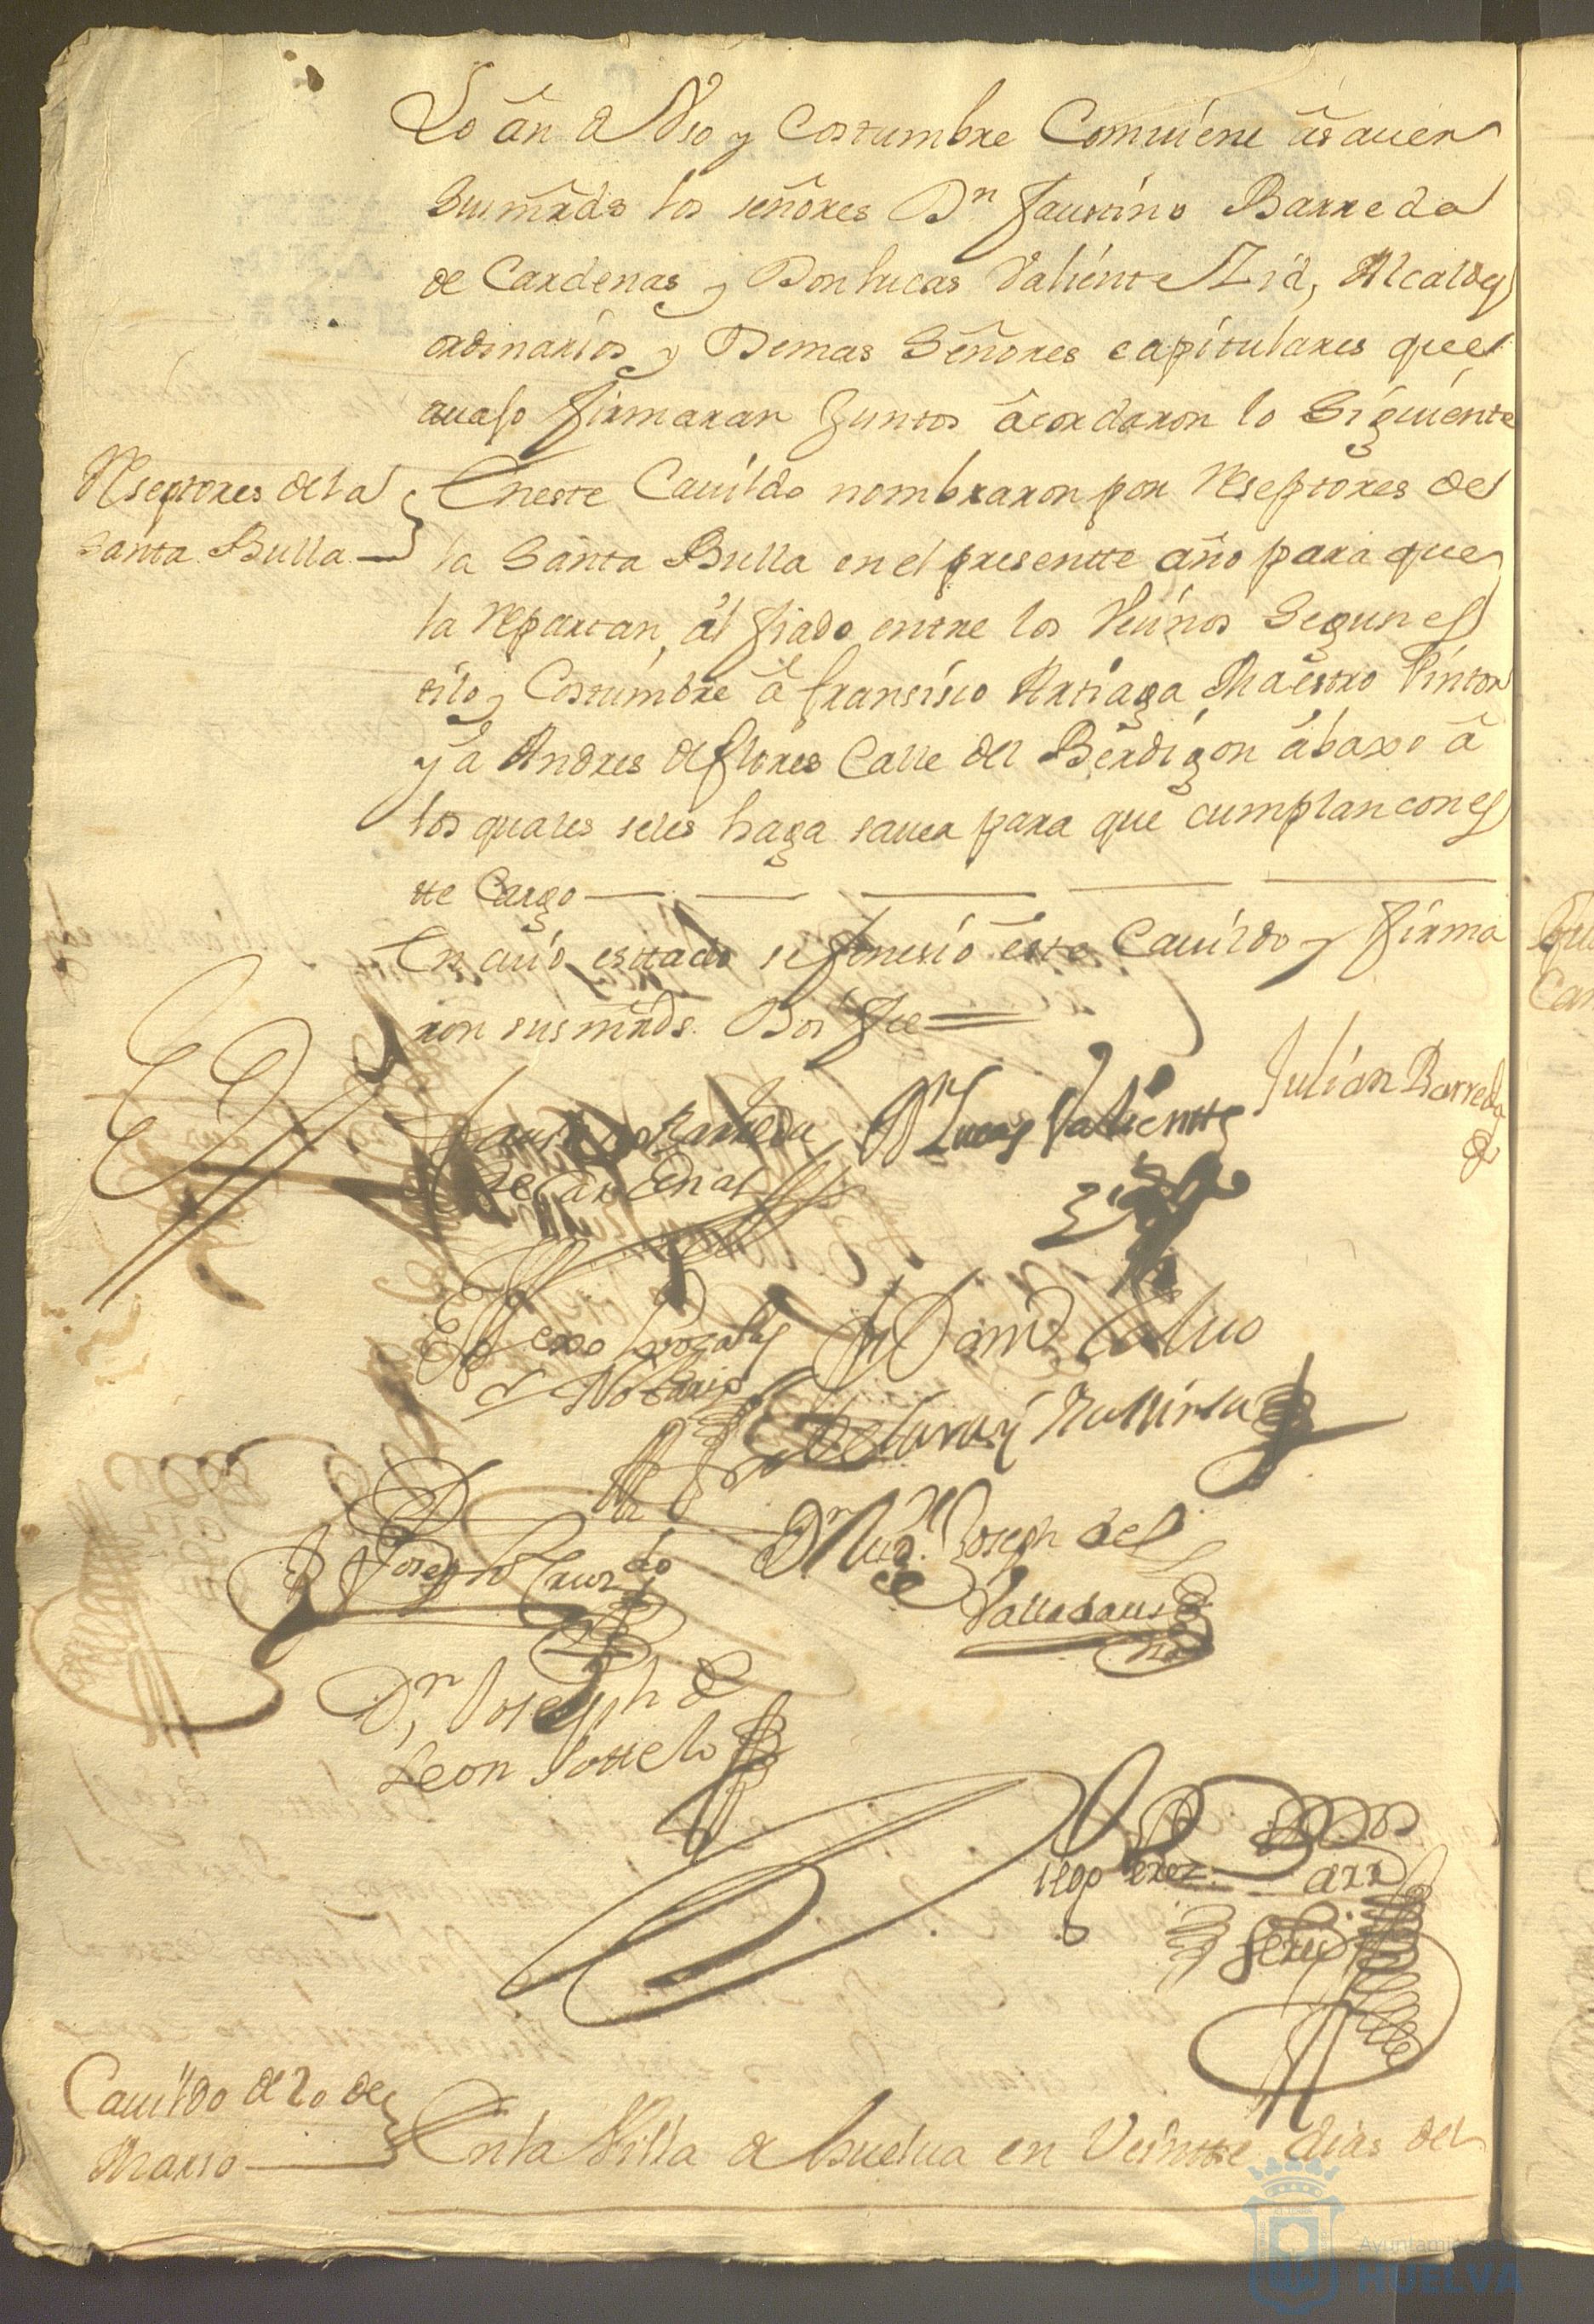 Lo ãn de Vso y Costumbre Comuiene ãsauer
Sus mrds los señores Dn Faustino Barreda
de Cardenas y Don lucas Valiente Zid, Alcaldes
ordinarios y Demas Señores capitulares que
auajo firmaran Juntos ãcordaron lo Siguiente
Reseptores de la
Santa Bulla
Eneste Cauildo nombraron por Reseptores de
la Santa Bulla en el presentte año para que
la Repartan al fiado entre los Veuinos Segun es
tilo y Costumbre ã fransisco Artiaga Maestro Pintor
y ã Andres de flores Calle del Berdigon ãbaxo ã
los quales seles haga sauer para que cumplan con es
tte Cargo
En cuio esttado se fenesio este Cauildo y firma
ron sus mrds. Doi fee
Faustino Barreda
de Cardenas
Dn Lucas Valientte
Zid
Julian Barreda
&
de Notario
Caluo
Joseph Cruzado
Joseph del
Dn Joseph de
Leon Sottelo
Diego Perez
Cauildo de 20 de
Marso
Enla Villa de huelua en Veintte dias del
Ayuntamie
HUELVA